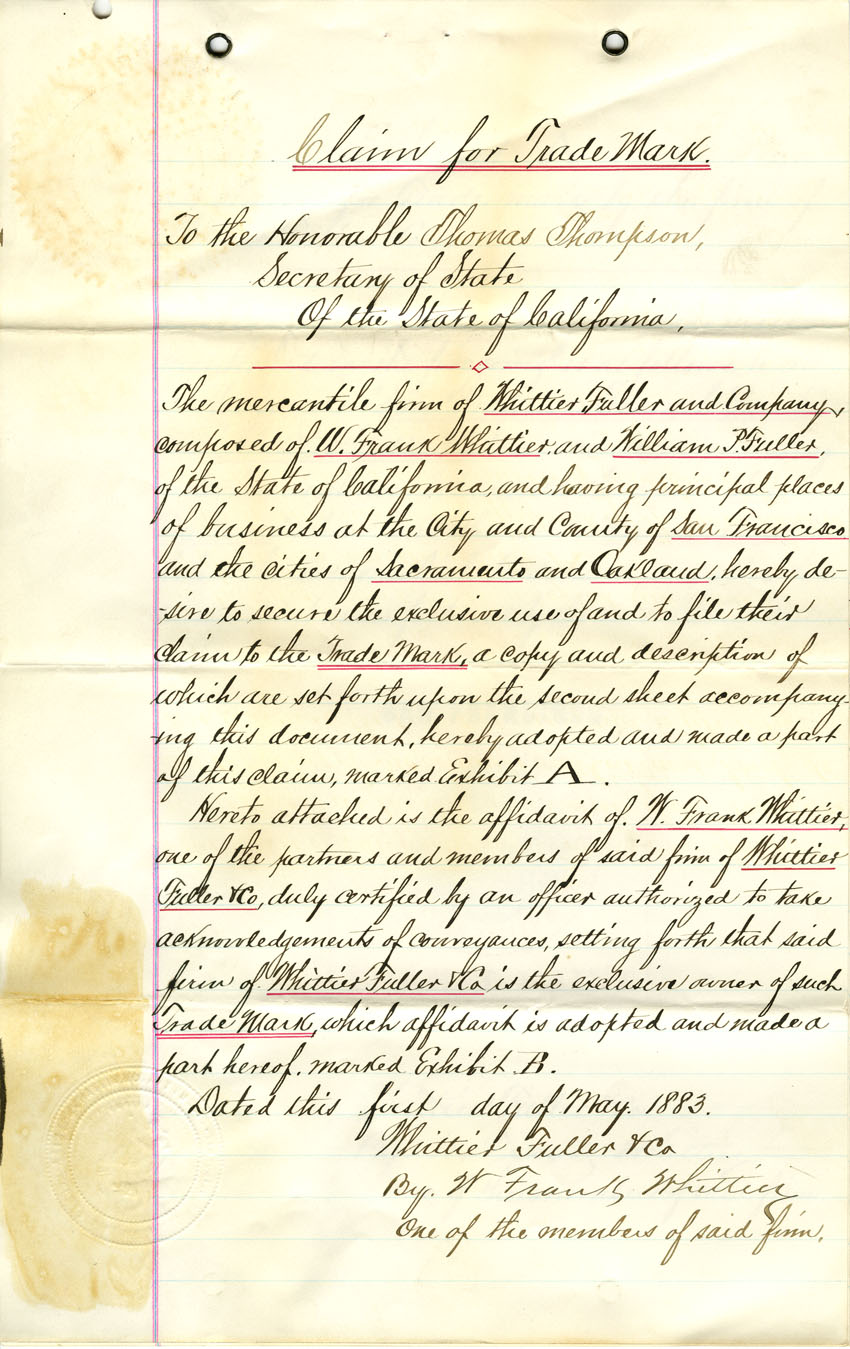 Claim for Trade Mark.
To the Honorable Thomas Thompson,
Secretary of State
Of the State of California,
The mercantile firm of Whittier, Fuller and Company,
composed of W. Frank Whittier, and William P. Fuller,
of the State of California, and having principal places
of business at the City and County of San Francisco
and the cities of Sacramento and Oakland, hereby de-
-sire to secure the exclusive use of and to file their
claim to the Trade Mark, a copy and description of
which are set forth upon the second sheet accompany-
-ing this document, hereby adopted and made a part
of this claim, marked Exhibit A.
Hereto attached is the affidavit of W. Frank Whittier,
one of the partners and members of said firm of Whittier
Fuller & Co, duly certified by an officer authorized to take
acknowledgements of conveyances, setting forth that said
firm of Whittier Fuller & Co is the exclusive owner of such
Trade Mark, which affidavit is adopted and made a
part hereof, marked Exhibit B.
Dated this first day of May. 1883.
Whittier Fuller & Co
By. W Frank Whittier
One of the members of said firm.